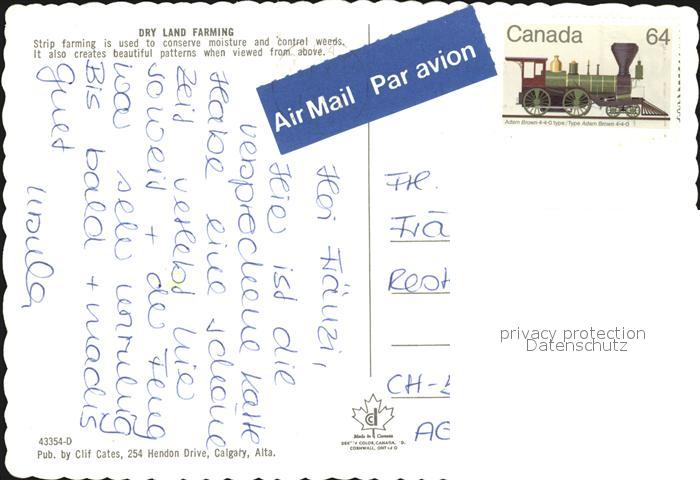 DRY LAND FARMING
Strip farming is used to conserve moisture and control weeds.
It also creates beautiful patterns when viewed from above.
Air Mail Par avion
Canada 64
Adam Brown 4-4-0 type/Type Adam Brown 4-4-0
Hoi Fränzi,
Hie ist die
versprochene Karte
Habe eine schöne
Zeit verlebt hie
soweit + de Flug
war sehr unruhig
Bis bald + machs
Guet
Ursula
Frl.
Frä
Rest
CH-
AG
privacy protection
Datenschutz
Made in Canada
COLOR, CANADA,
CORNWALL,
43354-D
Pub. by Clif Cates, 254 Hendon Drive, Calgary, Alta.